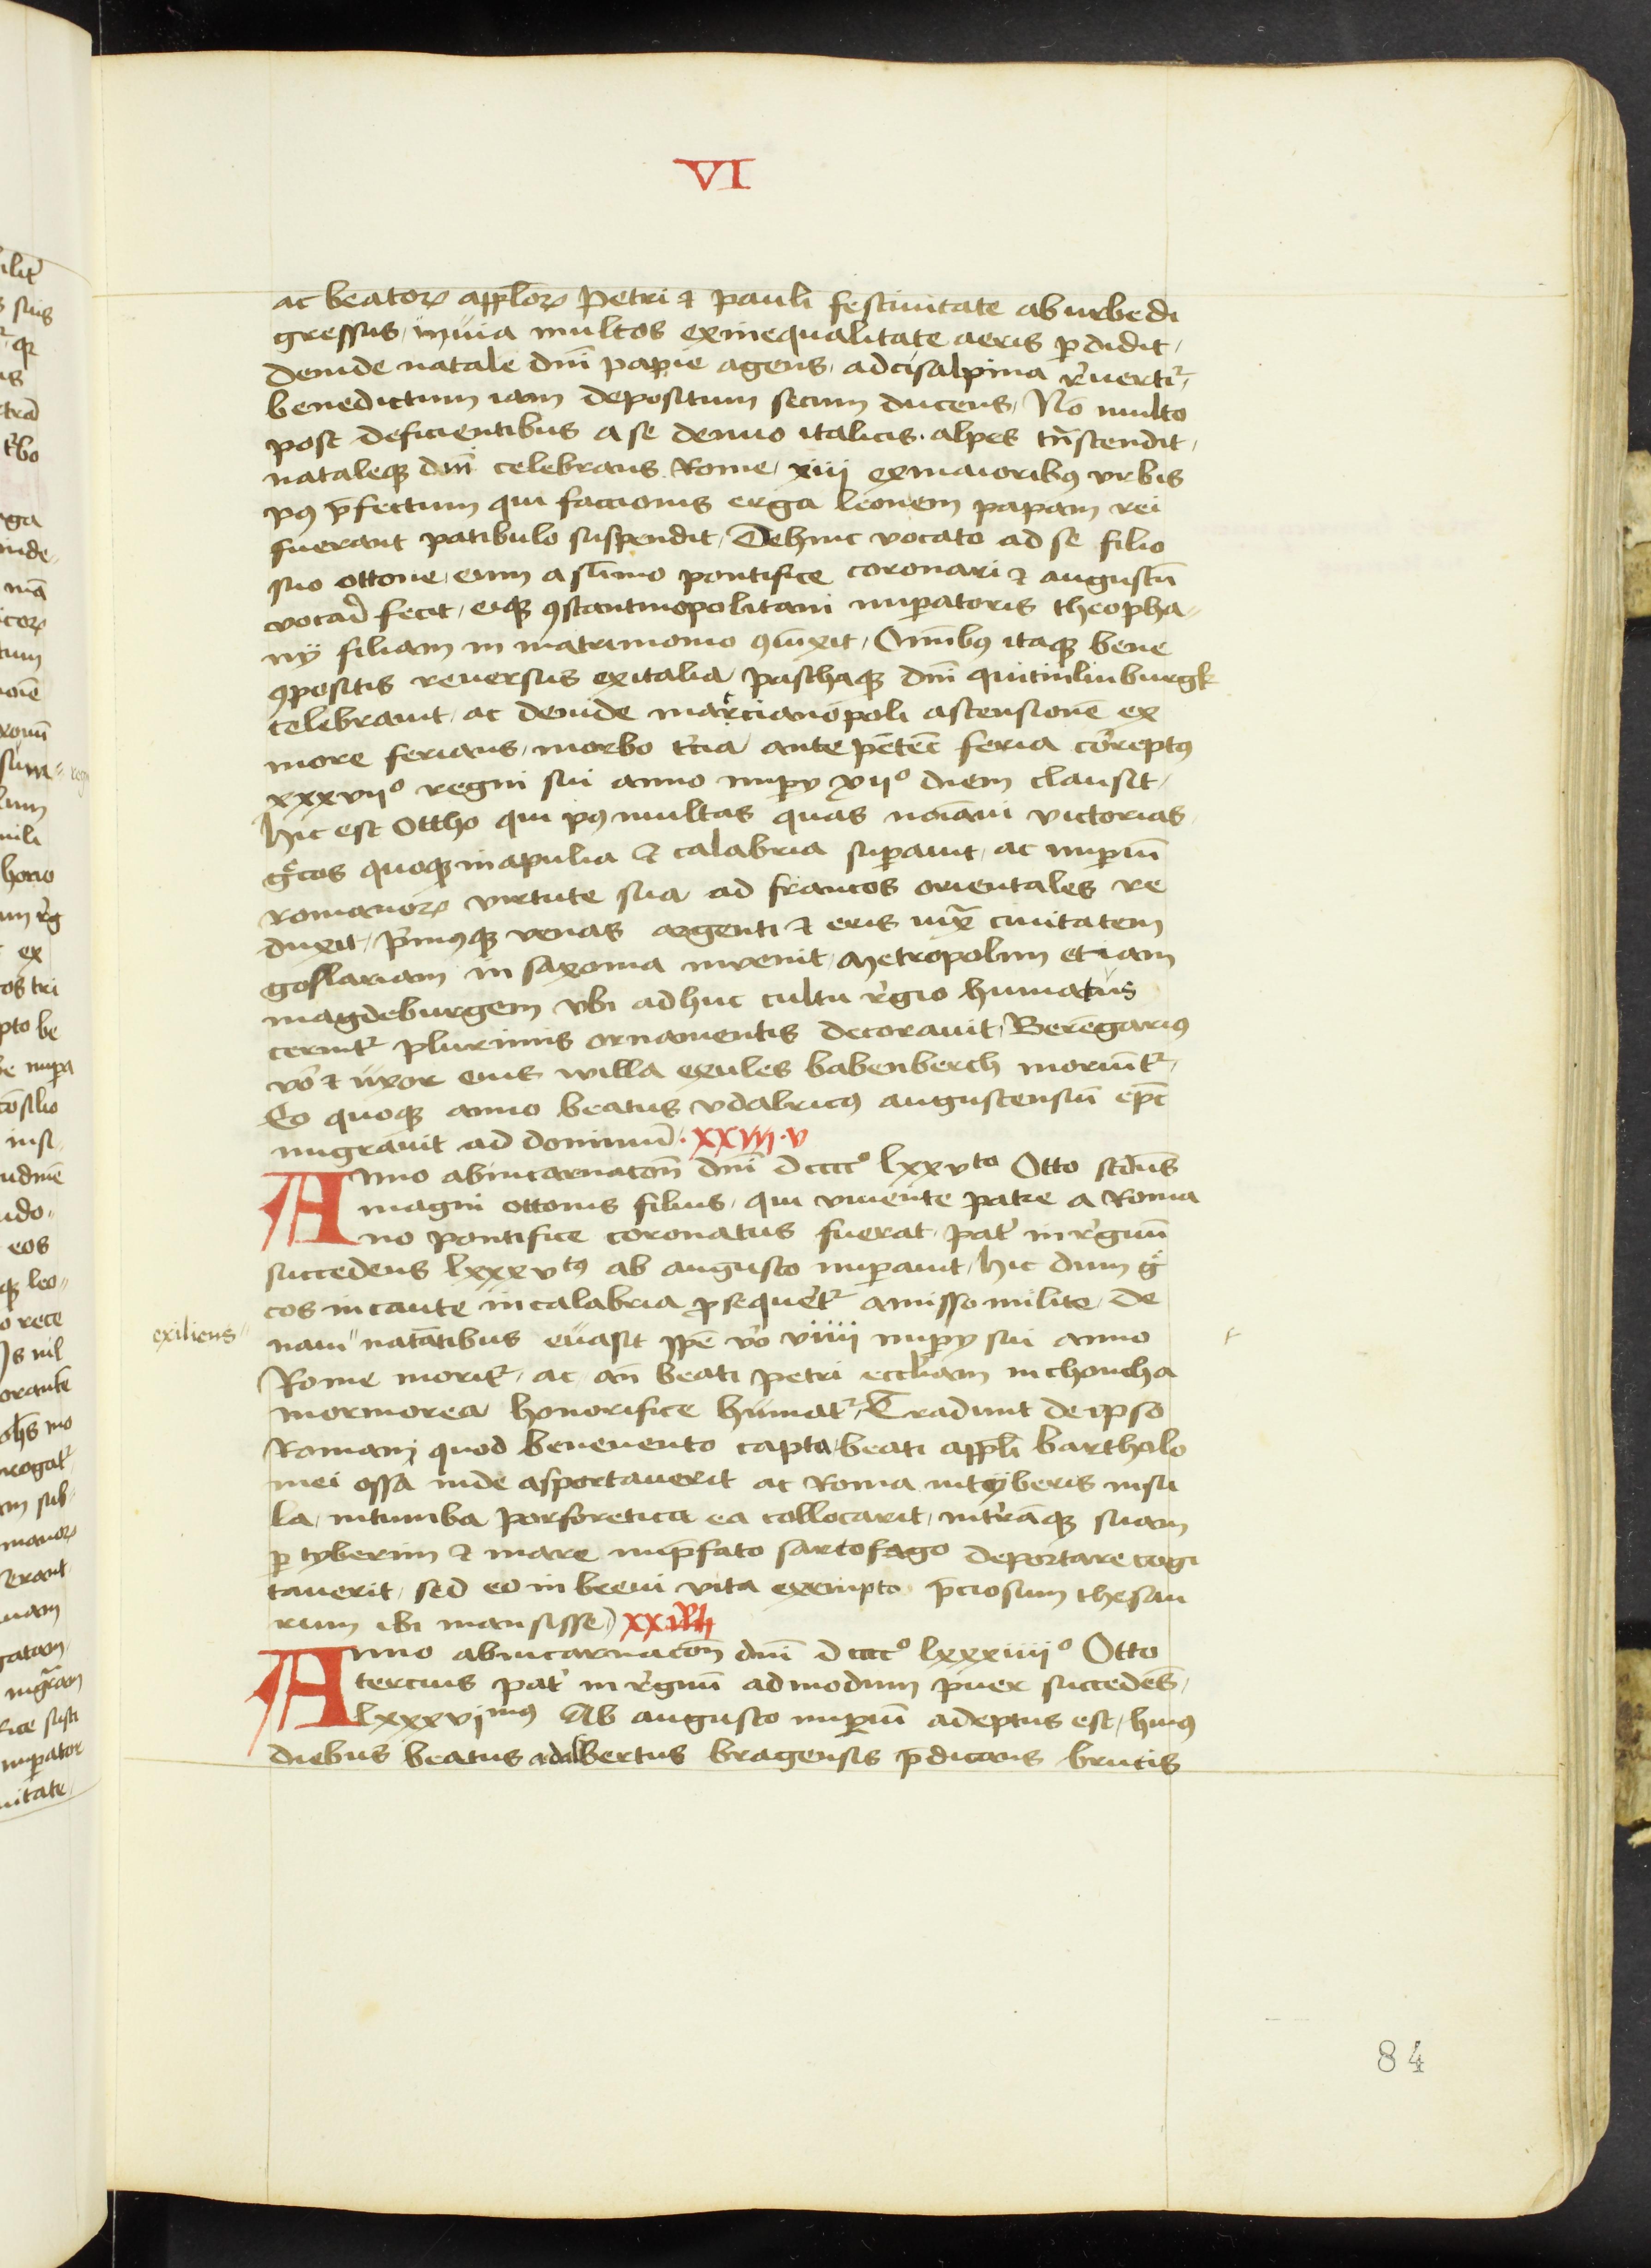 VI
ac beatoꝝ appl̄oꝝ Petri ⁊ pauli festiuitate ab urbe di
gressus, in uia multos ex inequalitate aeris ꝑdidit,
deinde natale dn̄i papie agens, ad cisalpina r̉uertit᷑,
benedictum iam depositum secum ducens, Nō multo
post deficientibus a se denuo italicis. alpes tn̄scendit,
nataleqꝫ dn̄i celebrans Rome, xiii ex maioribꝰ vrbis
pꝰ p̄fectum qui faccionis erga leonem papam rei
fuerant patibulo suspendit, Dehinc vocato ad se filio
suo ottone, eum a sūmo pontifice coronari ⁊ augustū
vocar̉ fecit, eiqꝫ ꝯstantinopolitani imꝑatoris theopha⸗
nij filiam in matrimonio ꝯiūxit, Om̄ibꝰ itaqꝫ bene
ꝯpositis reuersus ex italia, paschaqꝫ dn̄i quitinlinburgk
celebrauit, ac deinde marcianopoli ascensionē ex
more ferians, morbo t̉cia ante pētēc̄ feria cōreptꝰ
xxxvii° regni sui anno imꝑij xii° diem clausit,
hic est Ottho qui pꝰ multas quas noīaui victorias,
g̊cos quoqꝫ in apulia ⁊ calabria suꝑauit, ac imꝑiū
romanoꝝ virtute sua ad francos orientales re
duxit, p̉musqꝫ venas argenti ⁊ eris iux̄ ciuitatem
goslariam in saxonia inuenit, Metropolim etiam
magdeburgem vbi adhuc cultu r̉gio humatus
cernit᷑ plurimis ornamentis decorauit, Berēgariꝰ
vō ⁊ uxor eius willa exules babenberch moriūt᷑,
Eo quoqꝫ anno beatus vdalricꝰ augustensiū ep̄c
migrauit ad dominū. XXVI. V
Anno ab incarnacōn̄ dn̄i dcccc° lxxvto Otto scd̄us
magni ottonis filius, qui viuente patre a Roma
no pontifice coronatus fuerat, pat̉ in r̉gnū
succedens lxxxvtꝰ ab augusto imꝑauit, hic dum g̊
cos incaute in calabria ꝓsequer̉t᷑ amisso milite, de
exiliens⸗
naui" natātibus euasit ip̄e vō viiii imꝑij sui anno
Rome morit᷑, ac an̄ beati petri eccl̄iam in choncha
mormorea honorifice humat᷑, Tradunt de ipso
Romani quod beneuento capta, beati appl̄i bartholo
mei ossa inde asportauerit ac Roma in tyberis insu
la, in tumba porforetica ea collocarit, in tr̄āqꝫ suam
ꝑ tyberim ⁊ mare in p̄fato sarcofago deportare cogi
tauerit, sed eo in breui vita exempto p̄ciosum thesau
rum ibi mansisse)
Anno ab incarnacōn̄ dn̄i dcccc° lxxxiiii° Otto
tercius pat̉ in r̉gnū admodum puer succedēs,
lxxxvjmꝰ Ab augusto imꝑiū adeptus est, huiꝰ
diebus beatus adalbertus bragensis p̄dicans brutis
84